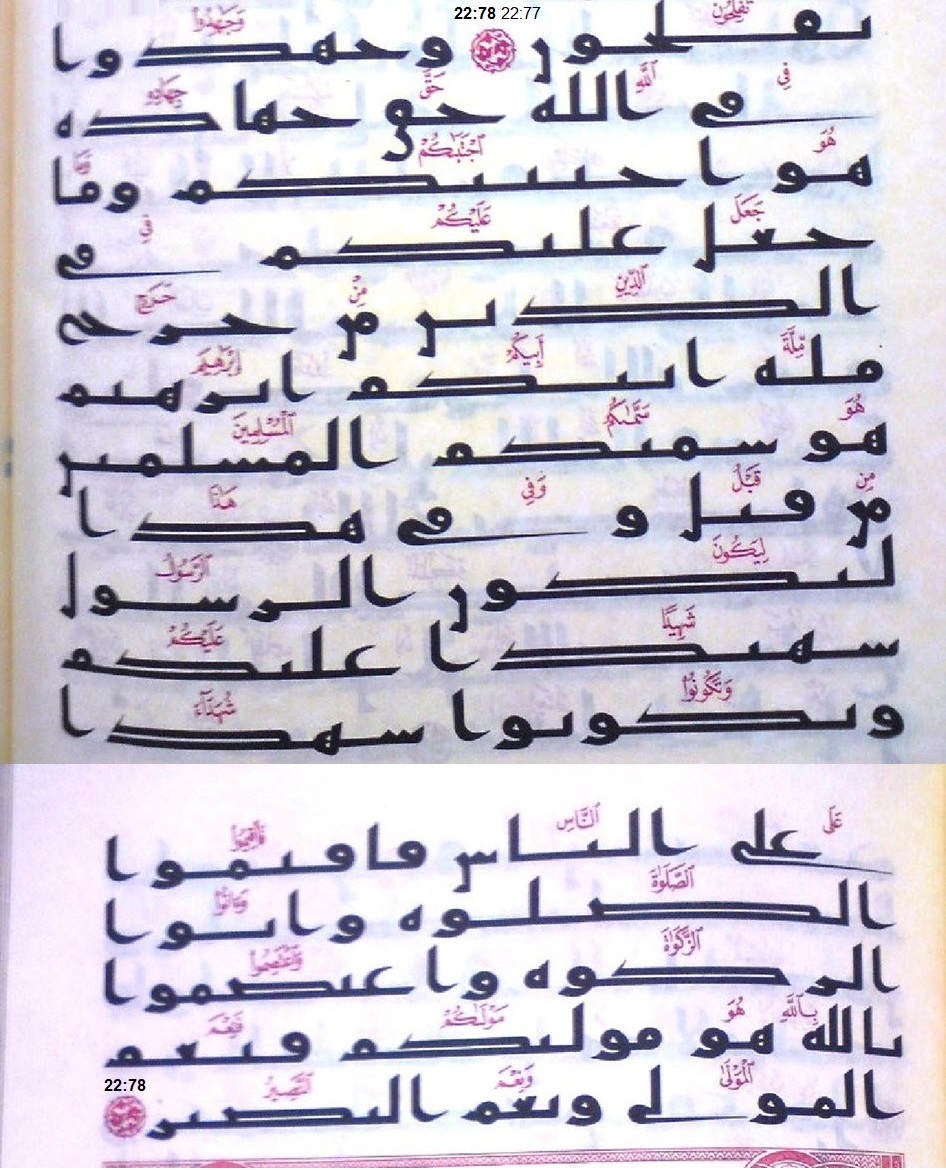 22:78 22:77
تُفْلِحُونَ وَجَٰهِدُوا۟
تفلحون وجهدوا
فِى ٱللَّهِ حَقَّ جِهَادِهِۦ
في الله حق جهاده
هُوَ ٱجْتَبَىٰكُمْ وَمَا
هو اجتبيكم وما
جَعَلَ عَلَيْكُمْ فِى
جعل عليكم في
ٱلدِّينِ مِنْ حَرَجٍ
الدين من حرج
مِّلَّةَ أَبِيكُمْ إِبْرَٰهِيمَ
ملة ابيكم ابرهيم
هُوَ سَمَّىٰكُمُ ٱلْمُسْلِمِينَ
هو سميكم المسلمين
مِن قَبْلُ وَفِى هَٰذَا
من قبل و في هذا
لِيَكُونَ ٱلرَّسُولُ
ليكون الرسول
شَهِيدًا عَلَيْكُمْ
شهيدا عليكم
وَتَكُونُوا۟ شُهَدَآءَ
وتكونوا شهدا
عَلَى ٱلنَّاسِ فَأَقِيمُوا۟
على الناس فاقيموا
ٱلصَّلَوٰةَ وَءَاتُوا۟
الصلوة واتوا
ٱلزَّكَوٰةَ وَٱعْتَصِمُوا۟
الزكوة واعتصموا
بِٱللَّهِ هُوَ مَوْلَىٰكُمْ فَنِعْمَ
بالله هو موليكم فنعم
ٱلْمَوْلَىٰ وَنِعْمَ ٱلنَّصِيرُ
22:78
المولى ونعم النصير